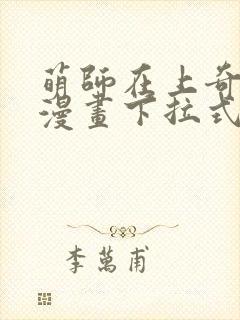 萌師在上奇
漫畫下拉式
李萬甫